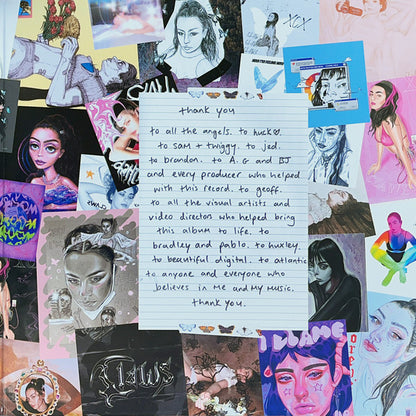 XCX
thank you
to all the angels. to huck♡.
to sam + twiggy. to jed.
to brandon. to A.G and BJ
and every producer who helped
with this record. to geoff.
to all the visual artists and
video directors who helped bring
this album to life. to
bradley and pablo. to huxley.
to beautiful digital. to atlantic
to anyone and everyone who
believes in me and my music.
thank you.
claws